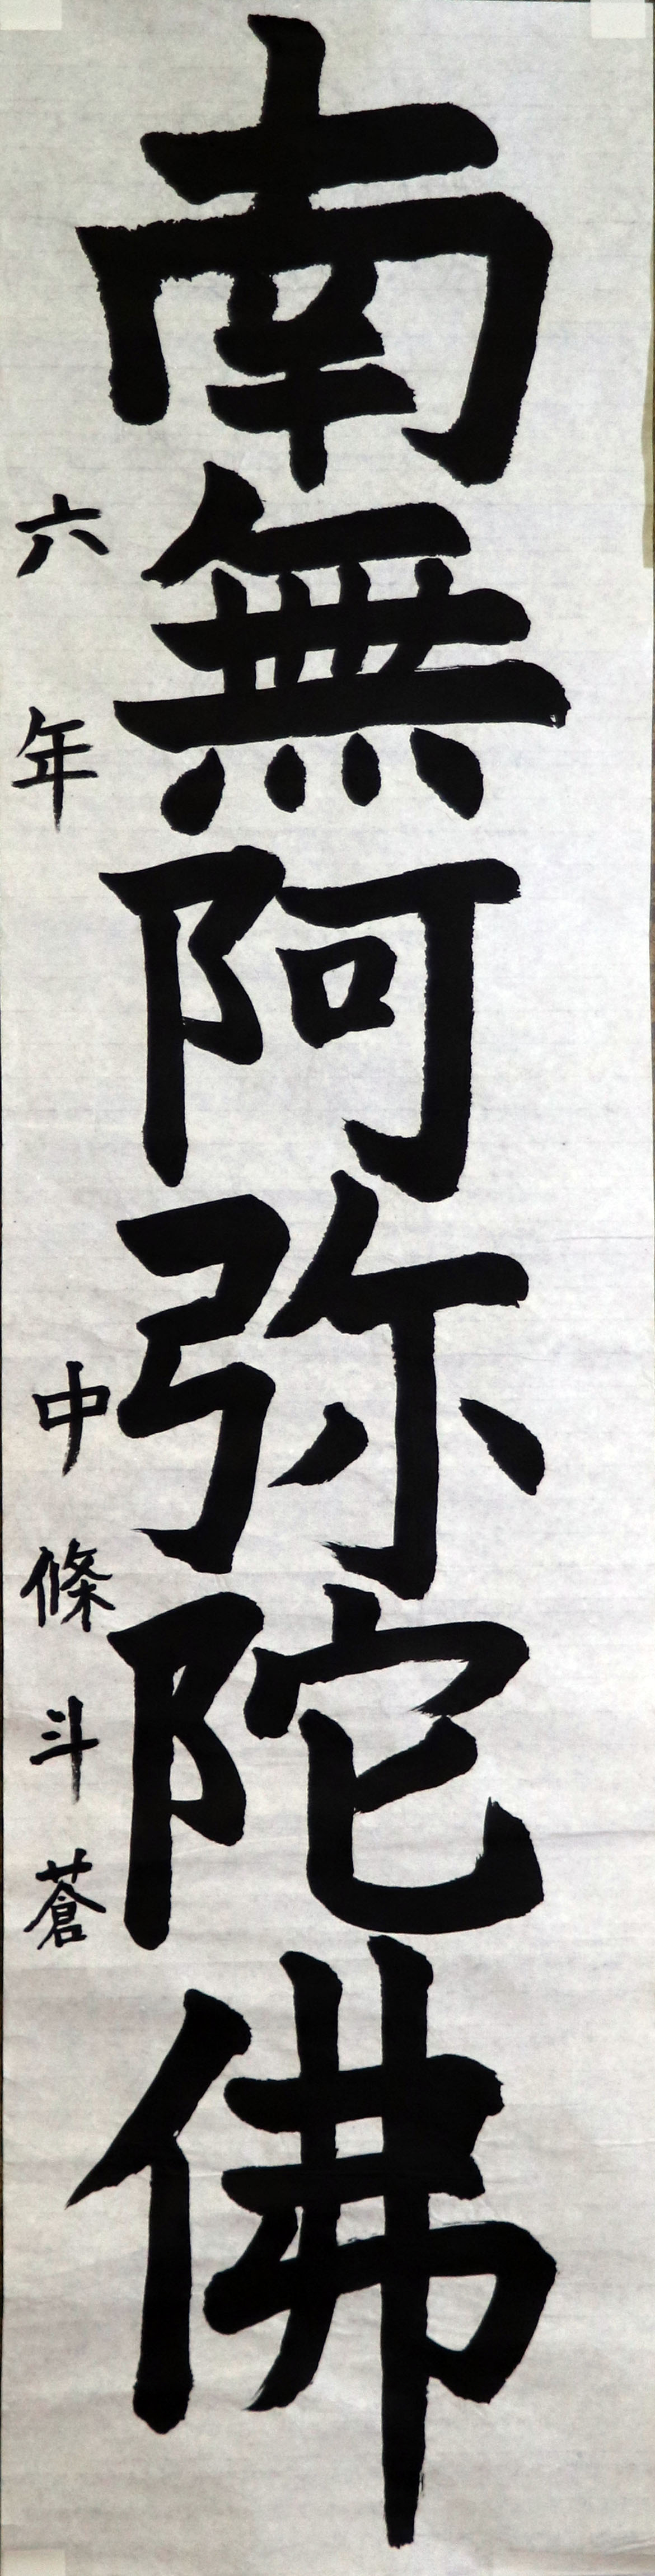 南無阿弥陀佛
六年 中條斗蒼